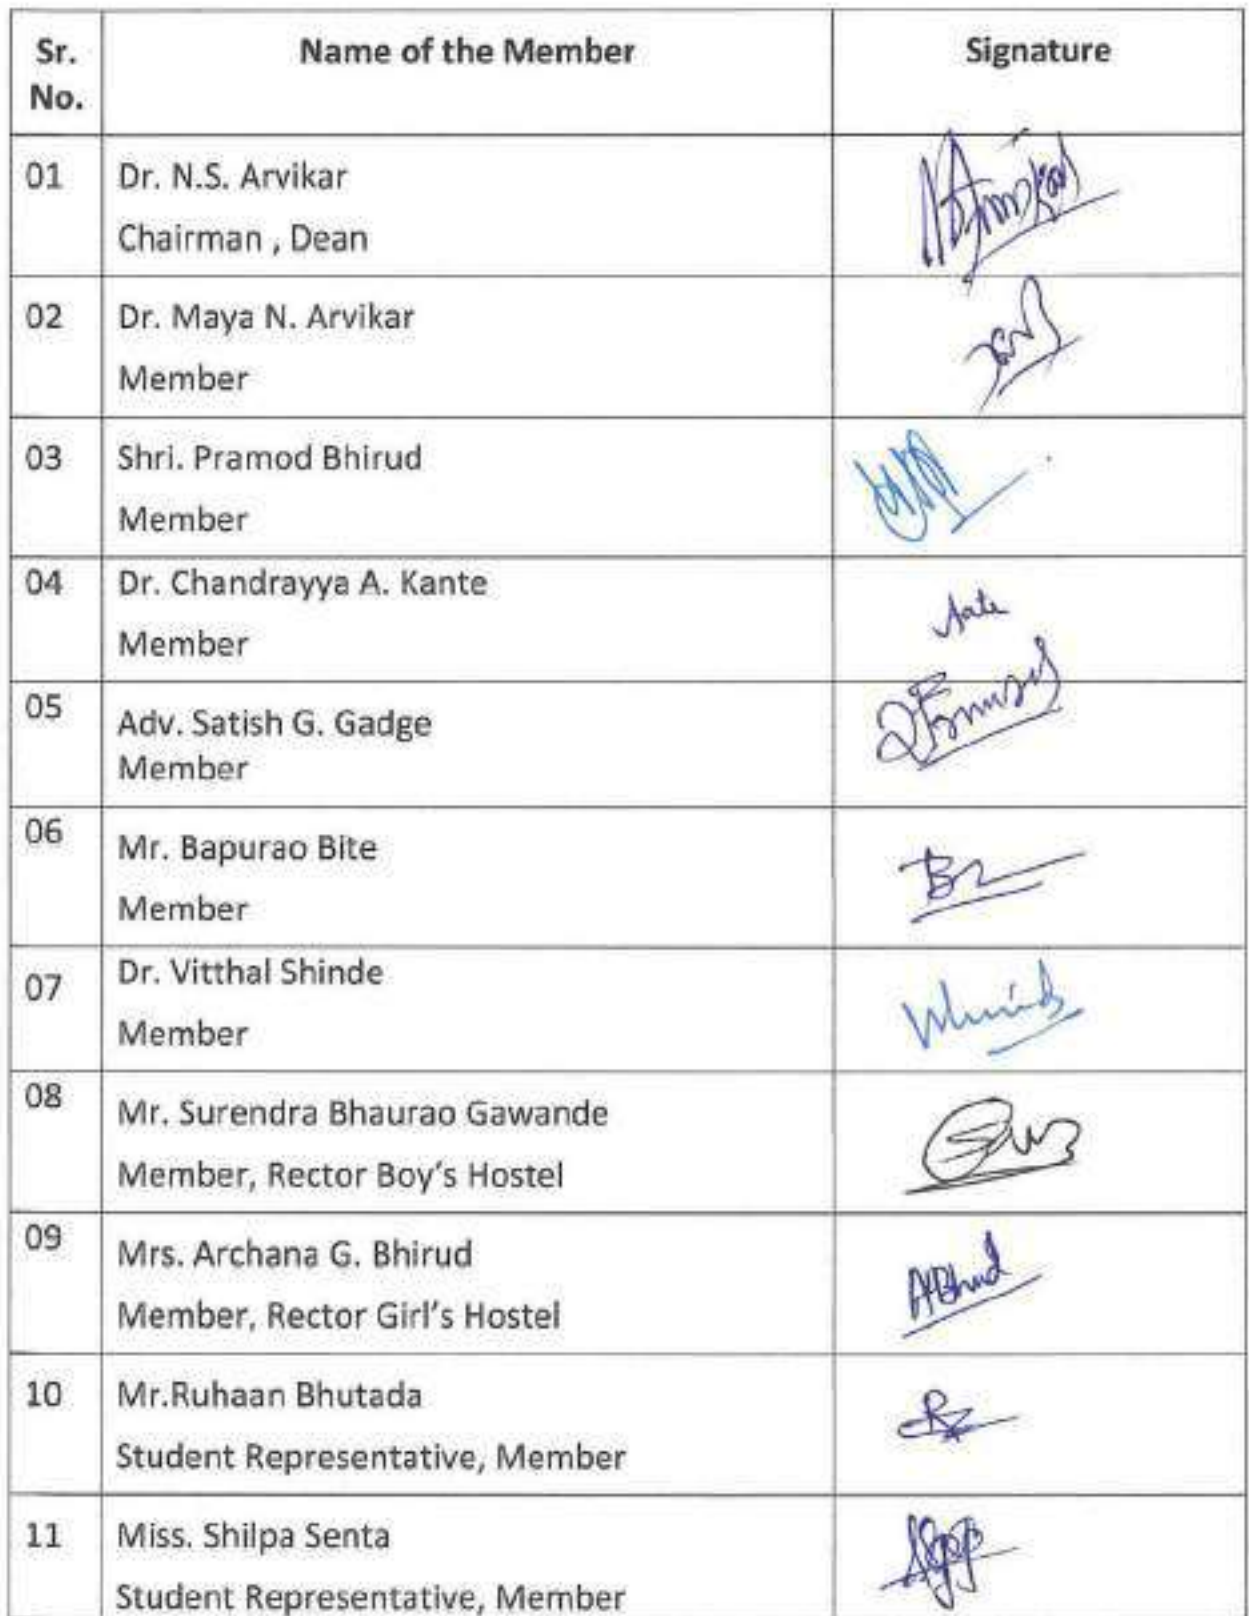 Sr. No. Name of the Member Signature
01 Dr. N.S. Arvikar
Chairman , Dean
02 Dr. Maya N. Arvikar
Member
03 Shri. Pramod Bhirud
Member
04 Dr. Chandrayya A. Kante
Member
05 Adv. Satish G. Gadge
Member
06 Mr. Bapurao Bite
Member
07 Dr. Vitthal Shinde
Member
08 Mr. Surendra Bhaurao Gawande
Member, Rector Boy's Hostel
09 Mrs. Archana G. Bhirud
Member, Rector Girl's Hostel
ABhirud
10 Mr.Ruhaan Bhutada
Student Representative, Member
11 Miss. Shilpa Senta
Student Representative, Member